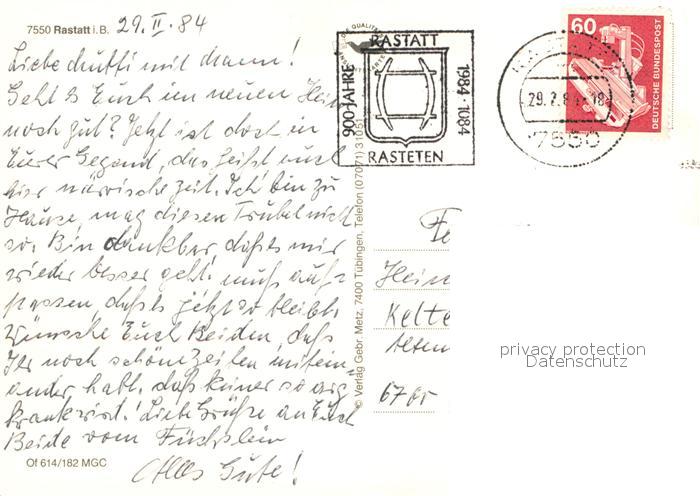 7550 Rastatt i. B. 29. II. 84
Liebe Mutti mit Mann!
Geht es Euch im neuen Heim
noch gut? Jetzt ist doch in
Eurer Gegend, das heißt auch
hier närrische Zeit. Ich bin zu
Hause, mag diesen Trubel nicht
so. Bin dankbar, daß es mir
wieder besser geht, muß auf-
passen, daß es jetzt so bleibt.
Wünsche Euch Beiden, daß
Ihr noch schöne Zeiten mitein-
ander habt, daß keiner so arg
krank wird! Liebe Grüße an Euch
Beide vom Füchslein
Alles Gute!
Of 614/182 MGC
© Verlag Gebr. Metz, 7400 Tübingen, Telefon (07071) 31051
900 JAHRE
RASTATT
1984·1084
RASTETEN
29.2.84
7550
60
DEUTSCHE BUNDESPOST
Hein
Kelte
Alten
6700
privacy protection
Datenschutz